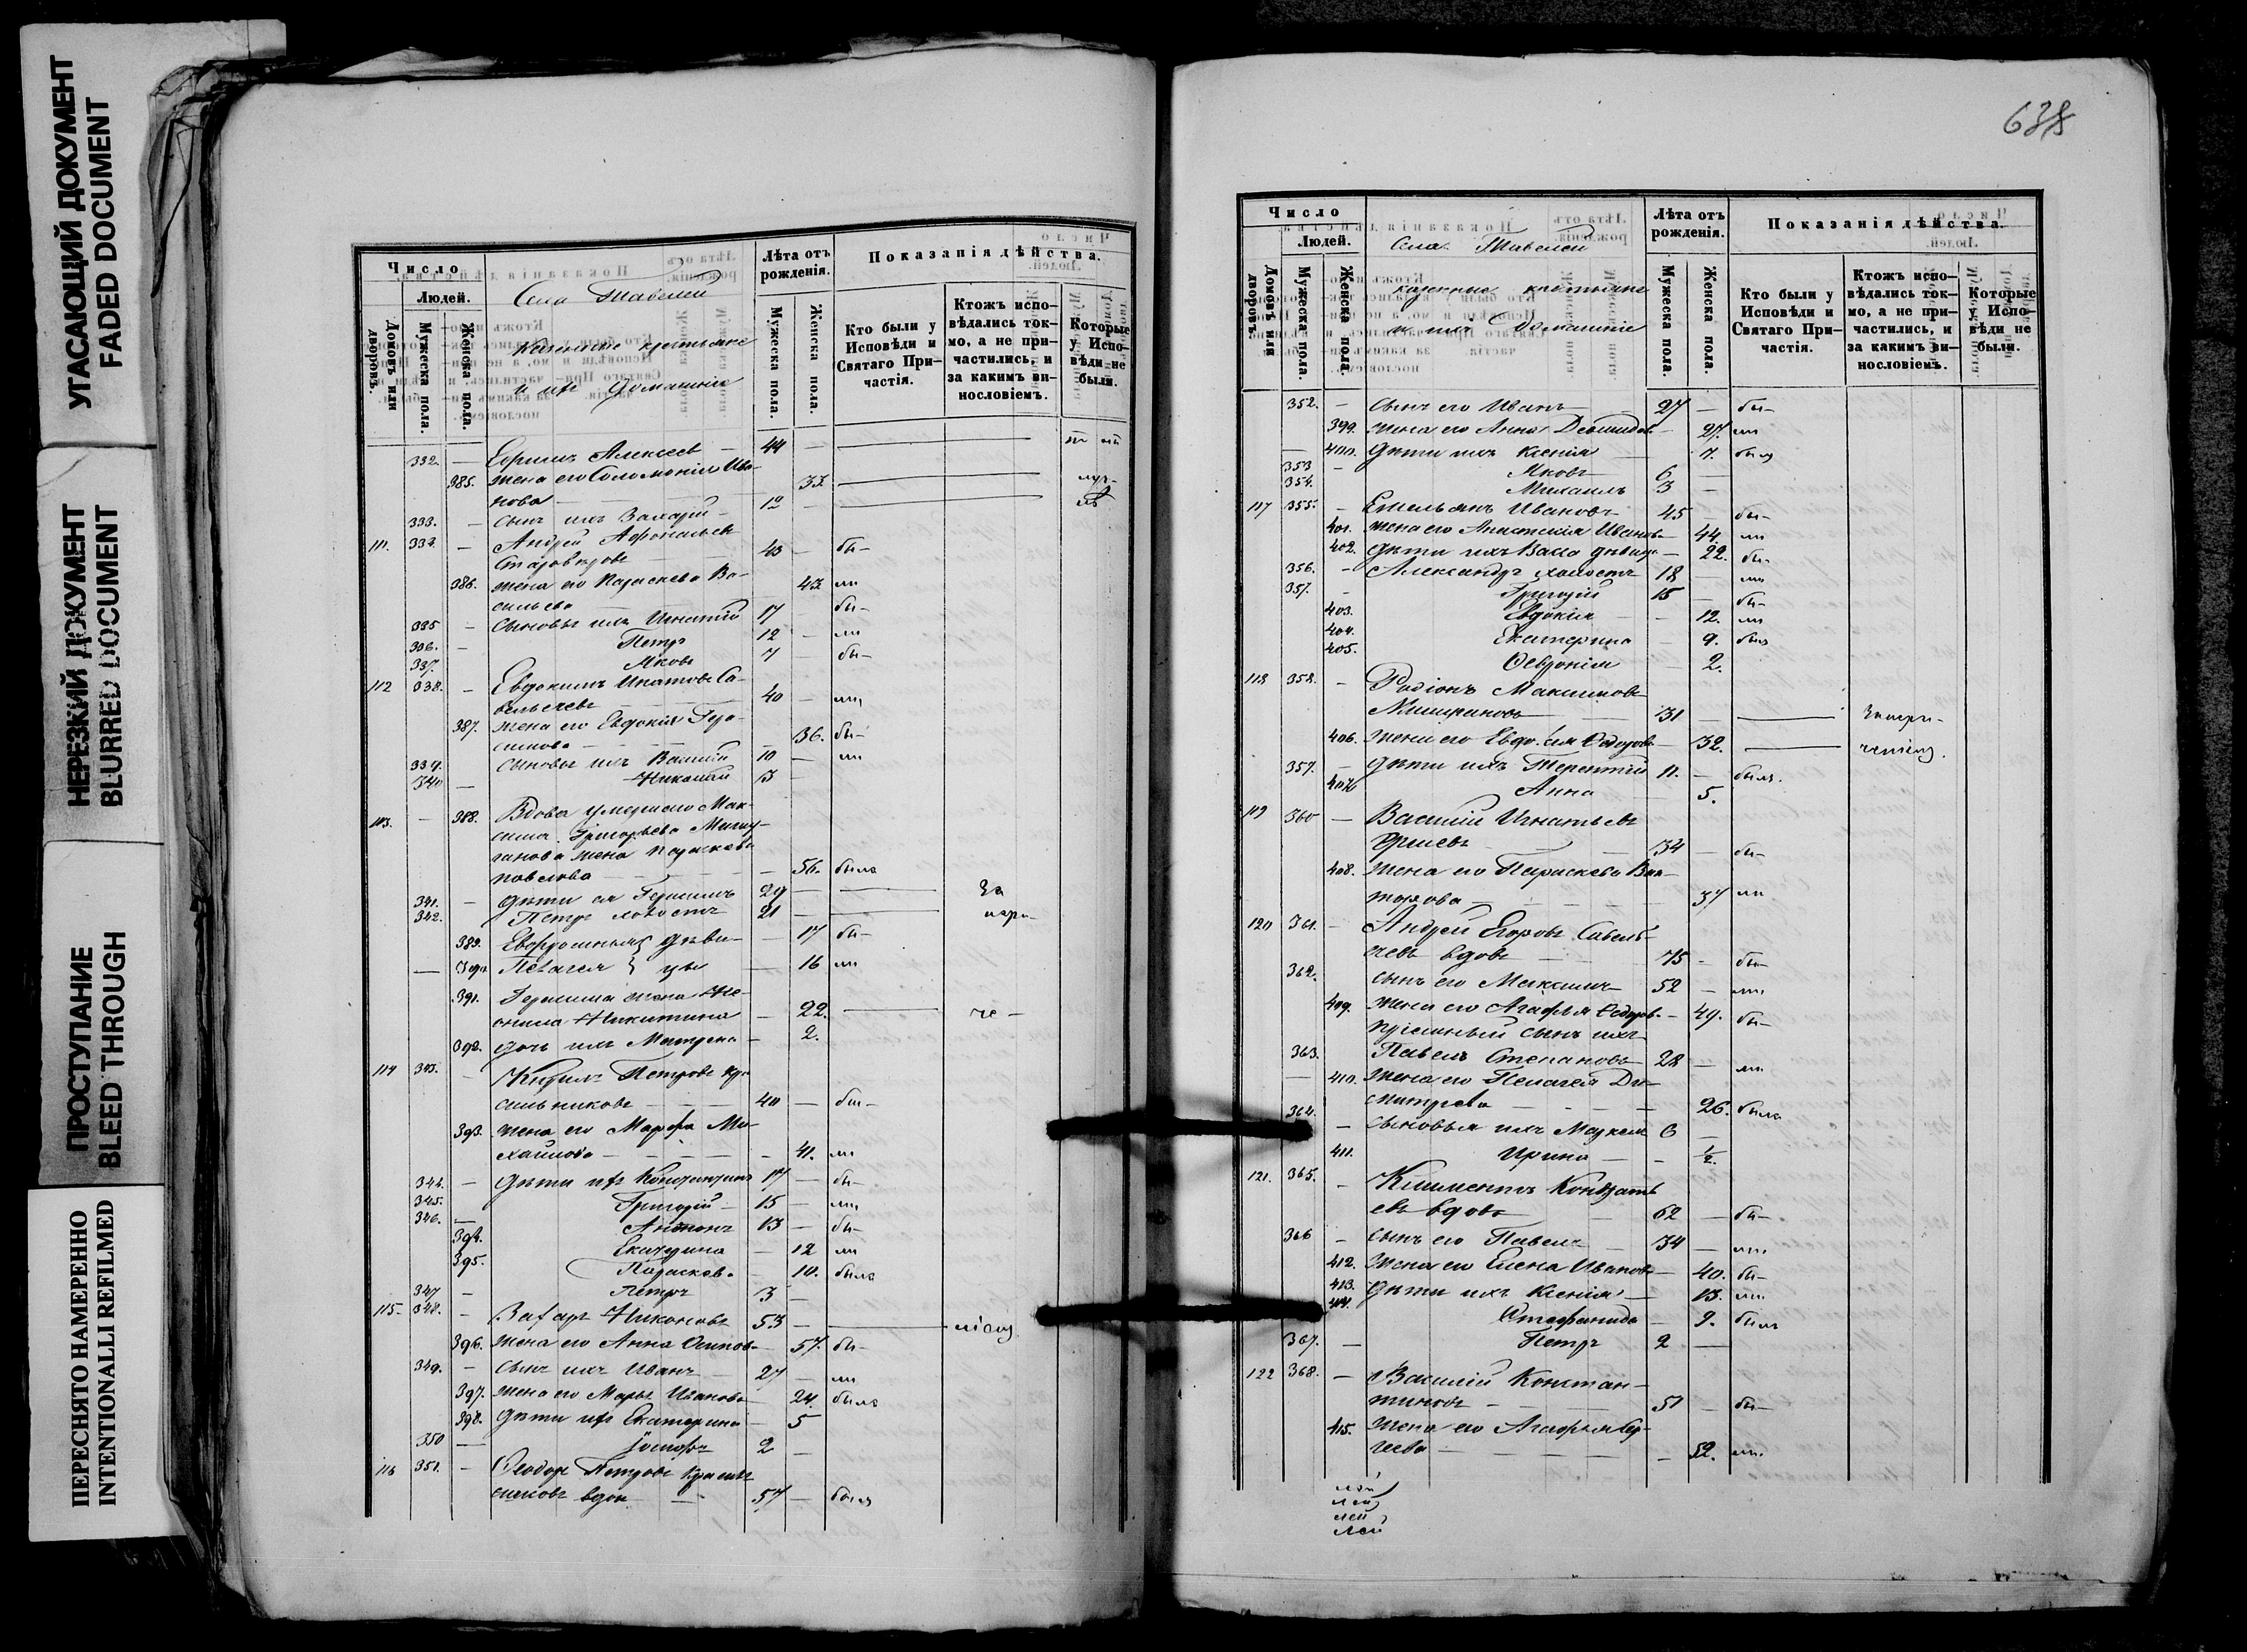 УГАСАЮЩИЙ ДОКУМЕНТ
FADED DOCUMENT
НЕРЕЗКИЙ ДОКУМЕНТ
BLURRED DOCUMENT
ПРОСТУПАНИЕ
BLEED THROUGH
ПЕРЕСНЯТО НАМЕРЕННО
INTENTIONALLI REFILMED
Число
Людей.
Домовъ или дворовъ.
Мужеска пола.
Женска пола.
Села Тавелей
Казенные крестьяне
и ихъ домашніе
Лѣта отъ рожденія.
Мужеска пола.
Женска пола.
Показанія дѣйства.
Кто были у Исповѣди и Святаго При-частія.
Ктожъ испо-вѣдались ток-мо, а не при-частились, и за какимъ ви-нословіемъ.
Которые у Испо-вѣди не были.
332. — Ефимъ Алексеевъ — 44 —
385. жена его Соломонія Ива-
нова 33
333. — сынъ ихъ Захарій 12 —
111. 334. — Андрей
43 — бы-
386. жена его Параскева Ва-
сильева 43 ли
335 — сыновья ихъ Игнатій 17 бы-
336. — Петръ 12 — ли
337. Яковъ 7 бы-
112 338. — Евдокимъ Са-
вельевъ 40 — ли
387. жена его Евдокія Гера-
симова 36. бы-
339. сыновья ихъ Василій 10 — ли
340 — Николай 3
113. — 388. Вдова умершаго Мак-
сима Григорьева
жена Параскева
Павлова 56. была
341. — дѣти ея Герасимъ 29 — За
342. Петръ холостъ 21 —
389. — 17 бы-
Пелагея — 16 ли
391. Герасима жена
Никитина — 22. че-
392. дочь ихъ Матрена — 2.
114 343. — Петровъ Кра
сильниковъ 40 — бы-
393. жена его Марфа Ми-
хайлова — 41. ли
344. — дѣти ихъ Константинъ 17 — бы-
345. Григорій — 15 — ли
346. — Антонъ 13 — бы-
394. Екатерина — 12 ли
395. Параскева 10. была
347 — Петръ 3 —
115. 348. — Захаръ Никоновъ 53 —
396. жена его Анна Осипова 57. бы-
349. — сынъ ихъ Иванъ 27 — ли
397. жена его Марья Иванова 24. была
398. дѣти ихъ Екатерина — 5
350 — Іосифъ 2 —
116 351. — Ѳеодоръ Петровъ
вдов 57 — былъ
638
Число
Людей.
Домовъ или дворовъ.
Мужеска пола.
Женска пола.
Села Тавелей
казенные крестьяне
и ихъ домашніе
Лѣта отъ рожденія.
Мужеска пола.
Женска пола.
Показанія дѣйства.
Кто были у Исповѣди и Святаго При-частія.
Ктожъ испо-вѣдались ток-мо, а не при-частились, и за какимъ ви-нословіемъ.
Которые у Испо-вѣди не были.
352. — сынъ его Иванъ 27 — бы-
399. жена его Анна 27. ли
400. дѣти ихъ Ксенія 7. была
353 — Яковъ 6 —
354. Михаилъ 3 —
117 355. — Емельянъ Ивановъ 45 — бы-
401. жена его Анастасія Иванова 44. ли
402. дѣти ихъ Васса дѣвица — 22. бы-
356. — Александръ холостъ 18 — ли
357. — Григорій 15 — бы-
403. Евдокія — 12. ли
404. Екатерина — 9. была
405. Ѳевронія — 2.
118 358. — Родіонъ Максимовъ
31 —
406. жена его Евдокія Ѳедорова 32.
357. — дѣти ихъ Терентій 11. — былъ.
407 Анна 5.
119 360 — Василій Игнатьевъ
34 — бы-
408. жена его Параскева Вик-
торова 37 ли
120 361. — Андрей Егоровъ Савель-
евъ вдовъ 75 — бы-
362. сынъ его Максимъ 52 — ли
409. жена его Агафья Ѳедоров. 49. бы-
пріемный сынъ ихъ
363. Павелъ Степановъ 28 — ли
410. жена его Пелагея Ди-
митріева 26. была
364. — сыновья ихъ Маркелъ 6 —
411. Ирина — 1/2.
121. 365. — Климентъ Кондрать
евъ вдовъ 62 — бы-
366 — сынъ его Павелъ 34 — ли
412. жена его Елена Иванова 40. бы-
413. дѣти ихъ Ксенія — 13. ли
414. Стефанида — 9. была
367. — Петръ 2 —
122 368. — Василій Констан-
тиновъ 51 — бы-
415. жена его Агафья Сер-
геева — 52. ли